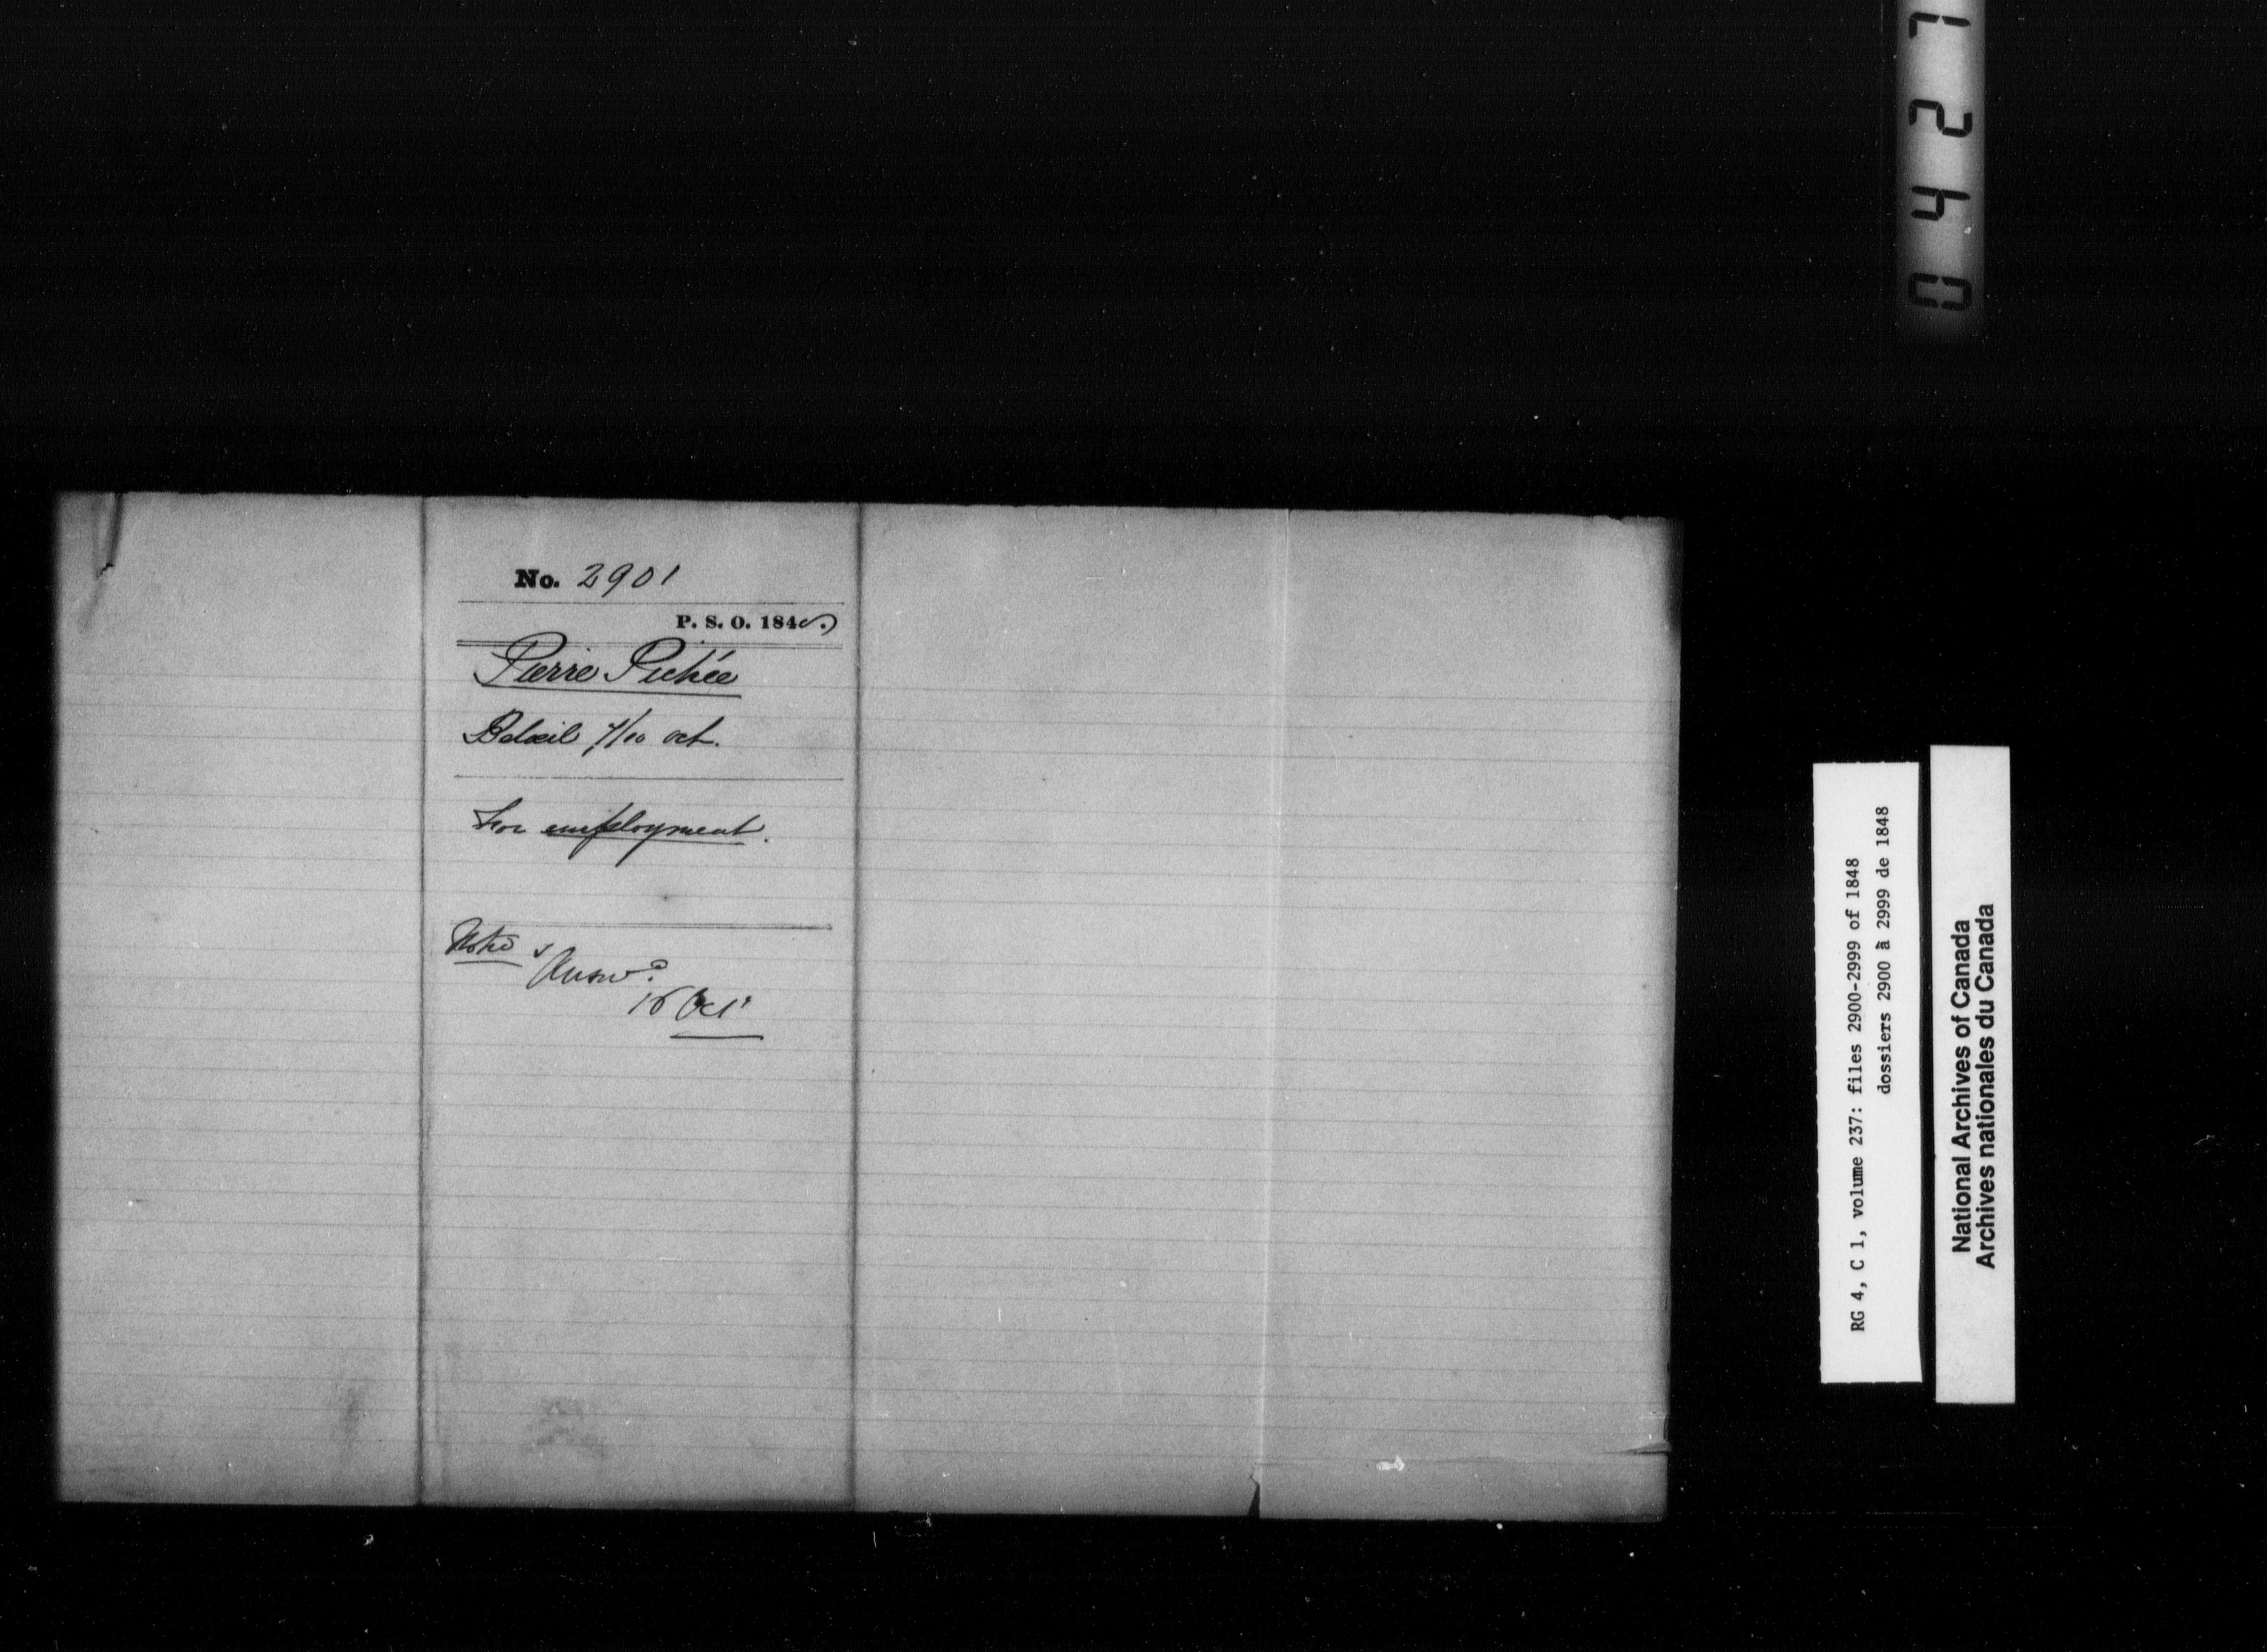 No. 2901
P. S. O. 1848.
Pierre Pichée
Belœil 7/10 oct.
For employment.
Noted &
Answd.
16 Oct
0427
RG 4, C 1, volume 237: files 2900-2999 of 1848
dossiers 2900 à 2999 de 1848
National Archives of Canada
Archives nationales du Canada